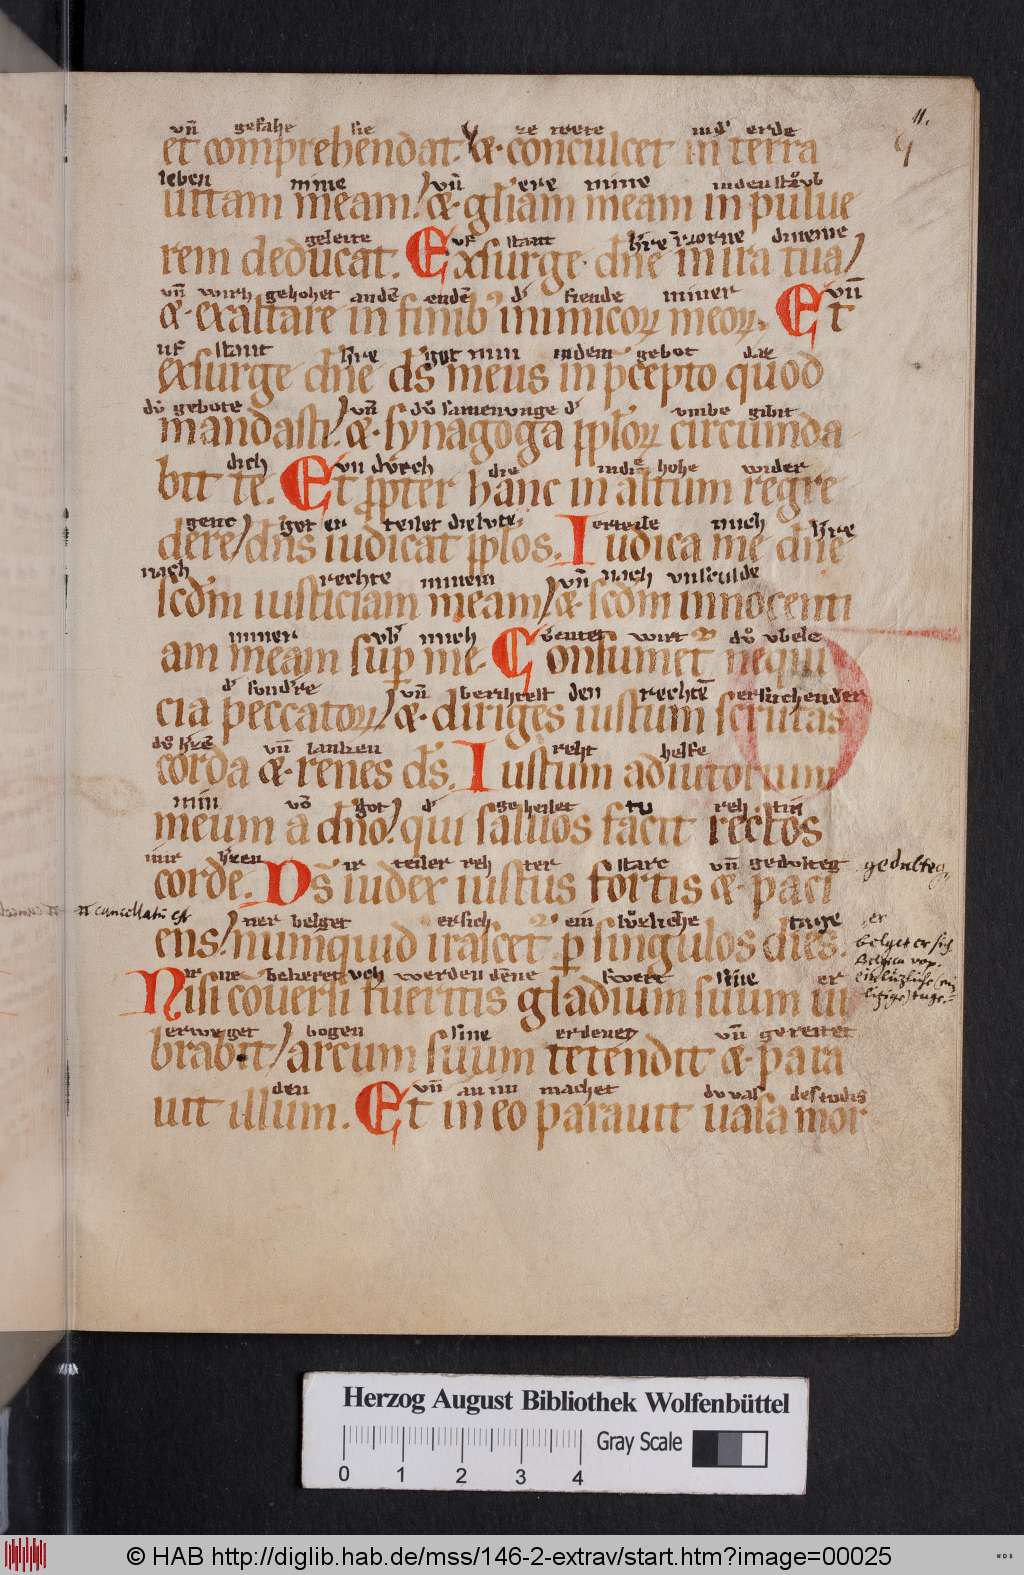 11.
9
vn̄ gefahe sie ze trete in d' erde
et comprehendat. ⁊ conculcet in terra
leben mine vn̄ ere mine
uitam meam. ⁊ gl'iam meam in pulue
geleite uf stant h're dineme
rem deducat. Exsurge dn̄e in ira tua
vn̄ wirh gehohet andē endē d' fiende miner vn̄
⁊ exaltare in finib' inimicoꝝ meoꝝ. Et
uf stant h're got min indem gebot daz
exsurge dn̄e ds̄ meus in p̄cepto quod
du gebote vn̄ du samenunge d' vmbe gibit
mandasti. ⁊ synagoga pp̄loꝝ circumda
dich vn̄ dvrch die indie hohe wider
bit te. Et ꝓpter hanc in altum regre
genc got er teilet die lvte erteile mich h're
dere dn̄s iudicat pp̄los. Iudica me dn̄e
nach rechte minem vn̄ nach vnsculde
scd̄m iusticiam meam ⁊ scd̄m innocenti
miner vb' mich wirt du vbele
am meam sup̄ me. Consumet᷑ nequi
d' sond're vn̄ berihtest den rechtē ersuchender
cia peccatoꝝ ⁊ diriges iustum scrutas
vn̄ reht helfe
corda ⁊ renes ds̄. Iustum adiutorium
min vō got d' geheilet tu
meum a dn̄o. qui saluos facit rectos
teiler reh ter starc vn̄ gedulteg gedulteg
corde. Ds̄ iudex iustus fortis ⁊ paci
cancellatū est ner belget ersich ein tage er
ens. numquid irascet᷑ p̄ singulos dies. belget er sich
werden swert sine er
Nisi cōuersi fueritis gladium suum ui
erweget bogen sine erdenet vn̄ gereitet
brabit arcum suum tetendit ⁊ para
den vn̄ machet du vas des todis
uit illum. Et in eo parauit uasa mor
Herzog August Bibliothek Wolfenbüttel
Gray Scale
0 1 2 3 4
© HAB http://diglib.hab.de/mss/146-2-extrav/start.htm?image=00025